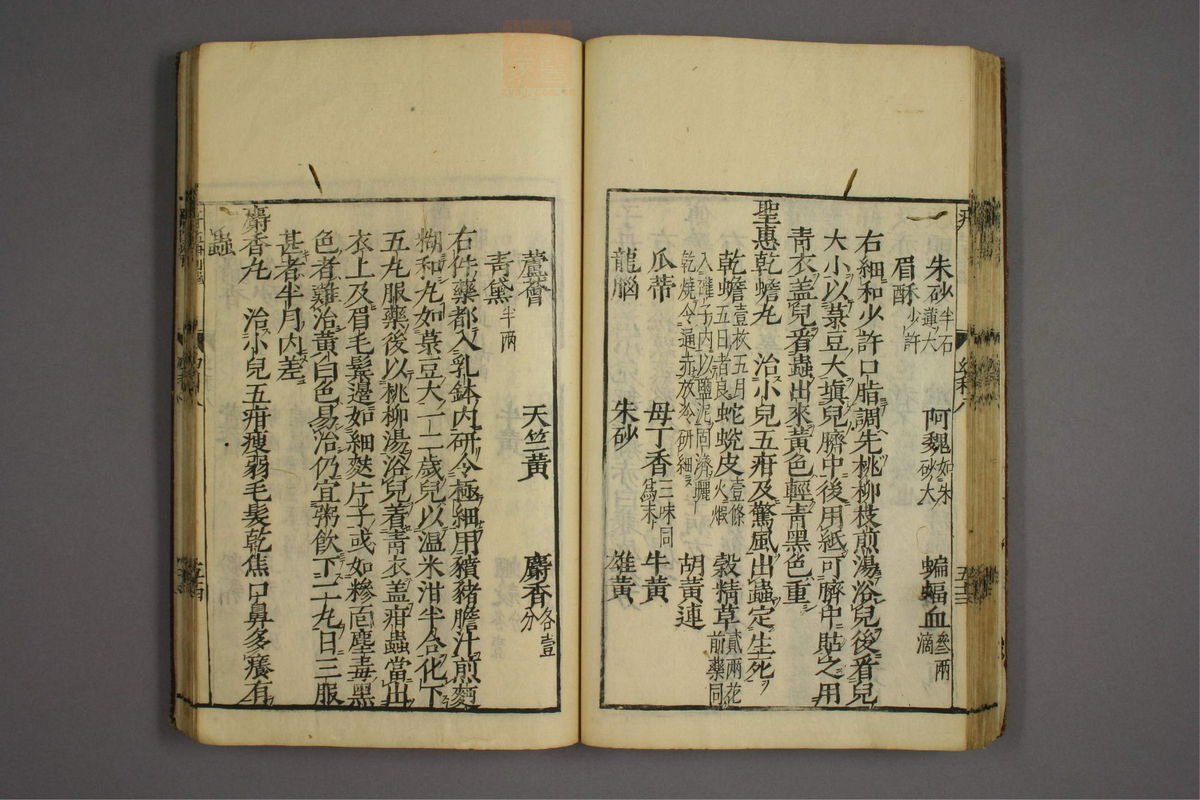 朱砂半石蓮大 阿魏如朱砂大 蝙蝠血叄兩滴
眉酥少許
右細和少許口脂調先桃柳枝煎湯浴兒後看兒
大小以菉豆大塡兒臍中後用紙可臍中貼之用
靑衣盖兒看蟲出來黃色輕靑黑色重
聖惠乾蟾丸 治小兒五疳及驚風出蟲定生死
乾蟾壹枚五月五日者良入罐子內以鹽泥固濟曬乾燒令通赤放冷硏細 蛇蛻皮壹條火煆 穀精草貳兩花前藥同
胡黃連
瓜蒂 母丁香三味同爲末 牛黃
龍腦 朱砂 雄黃
蘆薈 天竺黃 麝香各壹分
靑黛半兩
右件藥都入乳鉢內研令極細用豶豬膽汁煎麪
糊和丸如菉豆大一二歲兒以溫米泔半合化下
五丸服藥後以桃柳湯浴兒着靑衣盖疳蟲當出
衣上及眉毛鬢邊如細麩片子或如糝面塵毒黑
色者難治黃白色易治仍宜粥飮下二丸日三服
甚者半月內差
麝香丸 治小兒五疳瘦弱毛髮乾焦口鼻多癢有
蟲